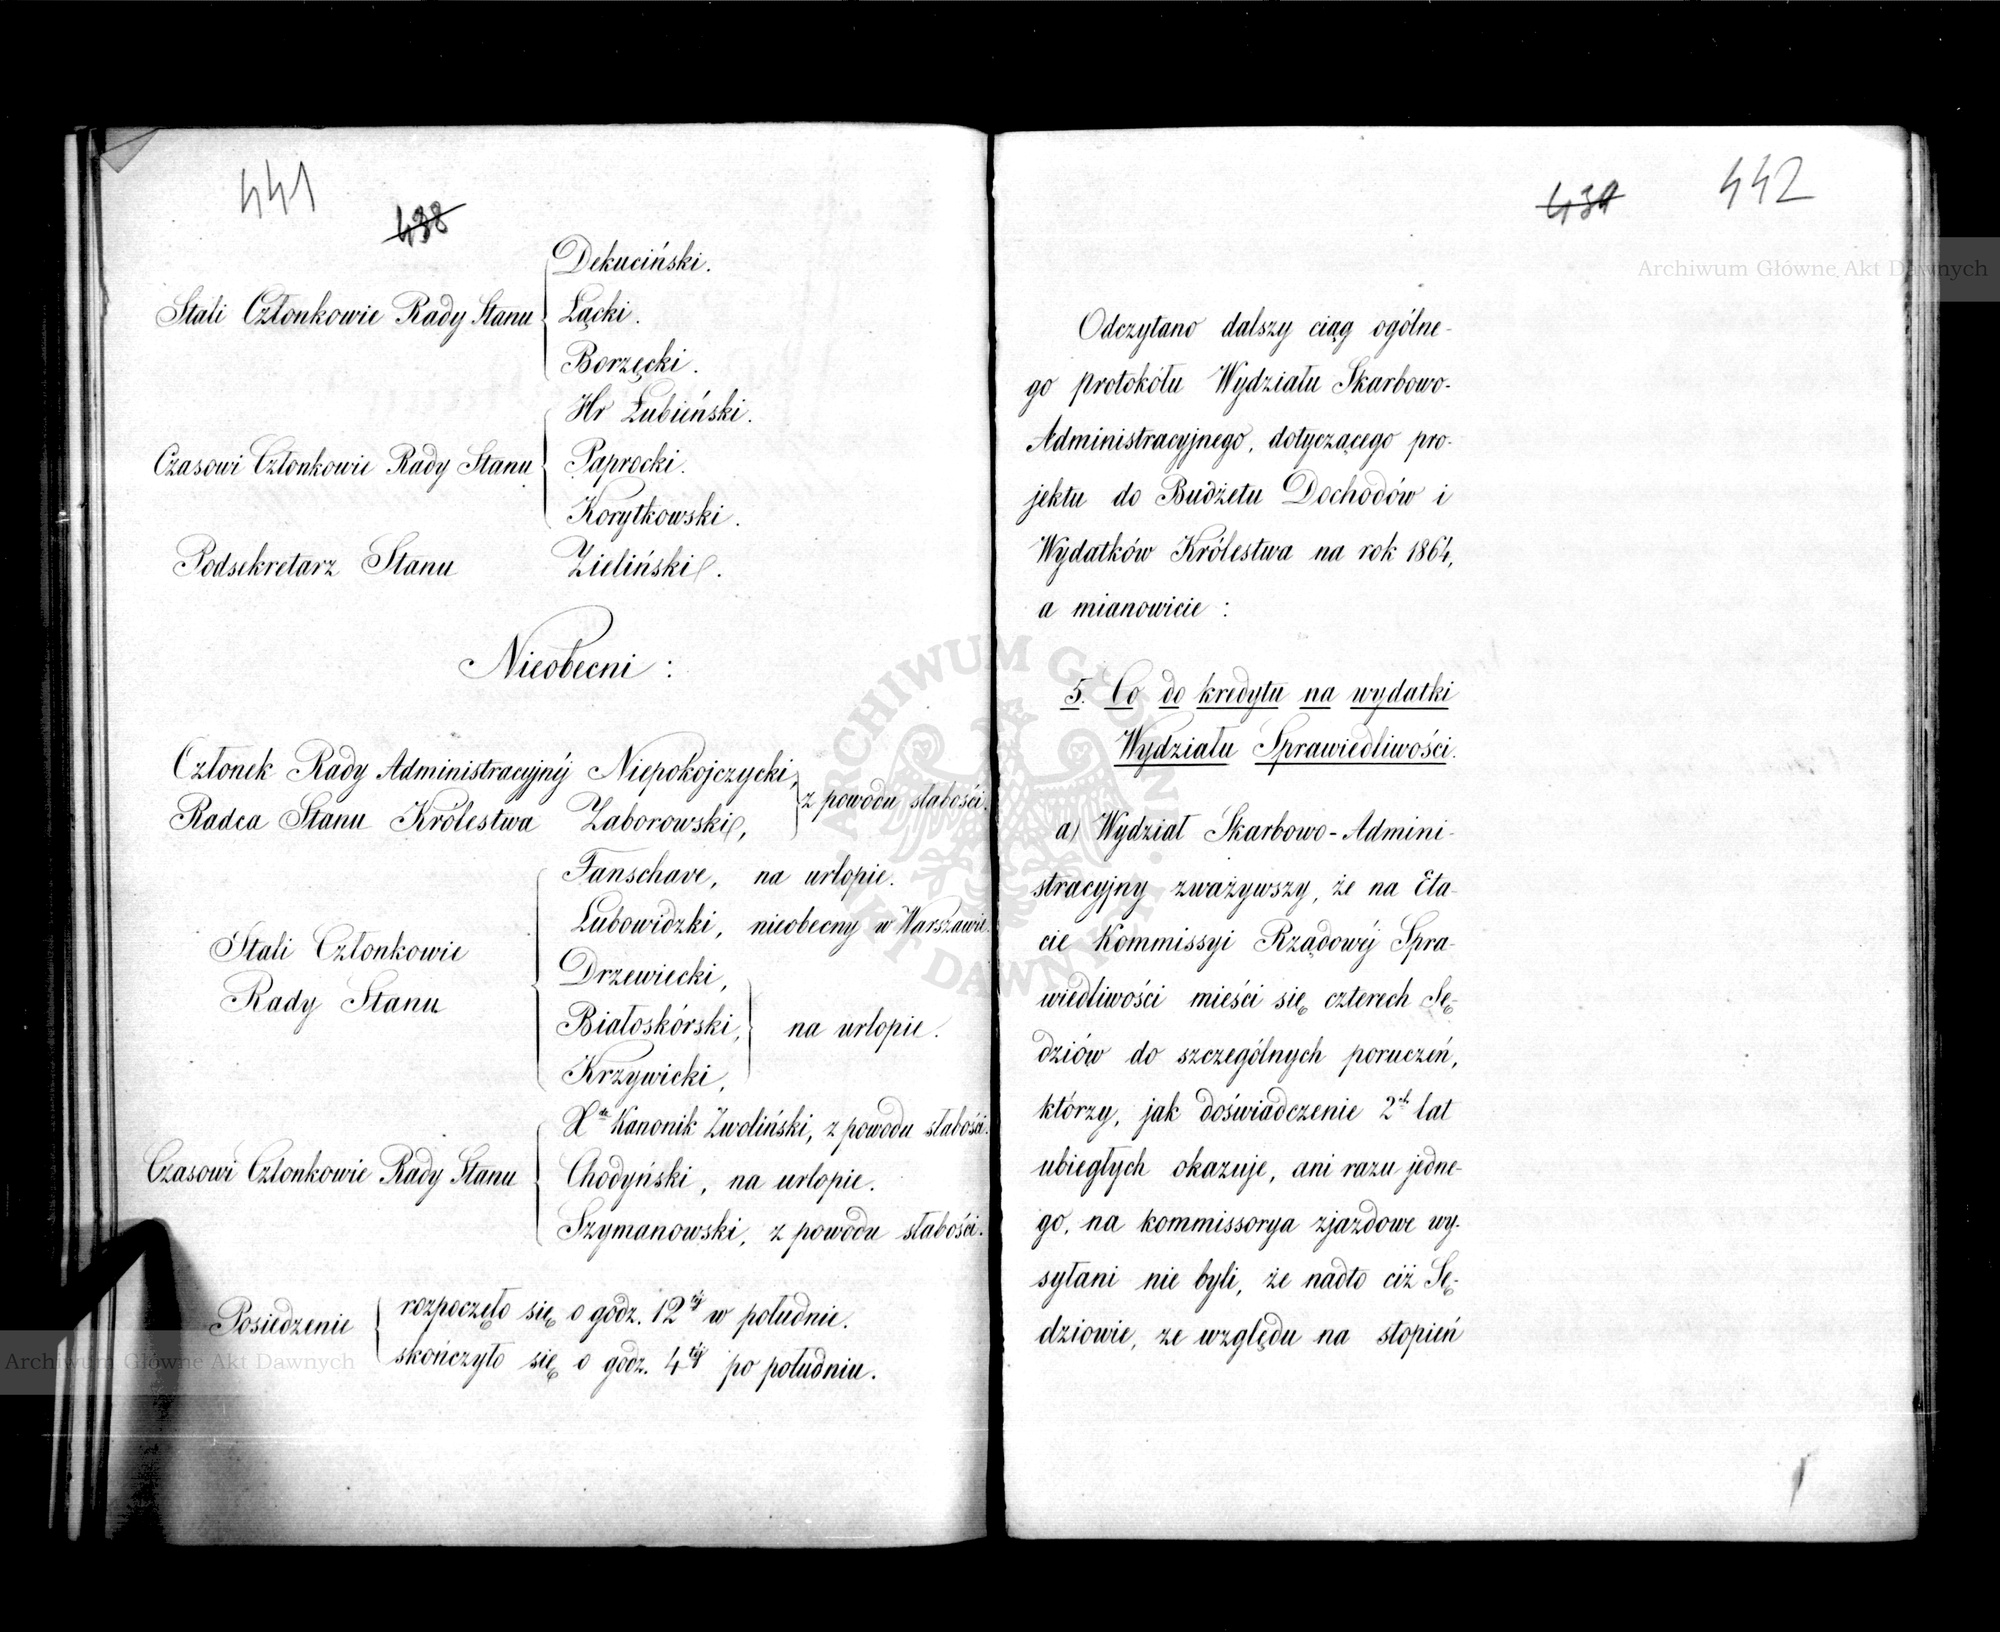 441
438
Dekuciński.
Stali Członkowie Rady Stanu Łącki.
Borzęcki.
Hr Łubieński.
Czasowi Członkowie Rady Stanu Paprocki.
Korytkowski.
Podsekretarz Stanu Zieliński.
Nieobecni :
Członek Rady Administracyjnéj Niepokojczycki,
z powodu słabości.
Radca Stanu Królestwa Zaborowski,
Fanschave, na urlopie.
Łubowidzki, nieobecny w Warszawie.
Stali Członkowie
Drzewiecki,
Rady Stanu
Białoskórski, na urlopie.
Krzywicki,
Xdz Kanonik Zwoliński, z powodu słabości.
Czasowi Członkowie Rady Stanu Chodyński, na urlopie.
Szymanowski, z powodu słabości.
Posiedzenie rozpoczęło się o godz. 12téj w południe.
skończyło się o godz. 4téj po południu.
442
Odczytano dalszy ciąg ogólne-
go protokółu Wydziału Skarbowo-
Administracyjnego, dotyczącego pro-
jektu do Budżetu Dochodów i
Wydatków Królestwa na rok 1864,
a mianowicie :
5. Co do kredytu na wydatki
Wydziału Sprawiedliwości.
a) Wydział Skarbowo-Admini-
stracyjny zważywszy, że na Eta-
cie Kommissyi Rządowéj Spra-
wiedliwości mieści się czterech Sę-
dziów do szczególnych poruczeń,
którzy, jak doświadczenie 2ch lat
ubiegłych okazuje, ani razu jedne-
go, na kommissorya zjazdowe wy-
syłani nie byli, że nadto ciż Sę-
dziowie, ze względu na stopień
Archiwum Główne Akt Dawnych
Archiwum Główne Akt Dawnych
ARCHIWUM GŁÓWNE AKT DAWNYCH